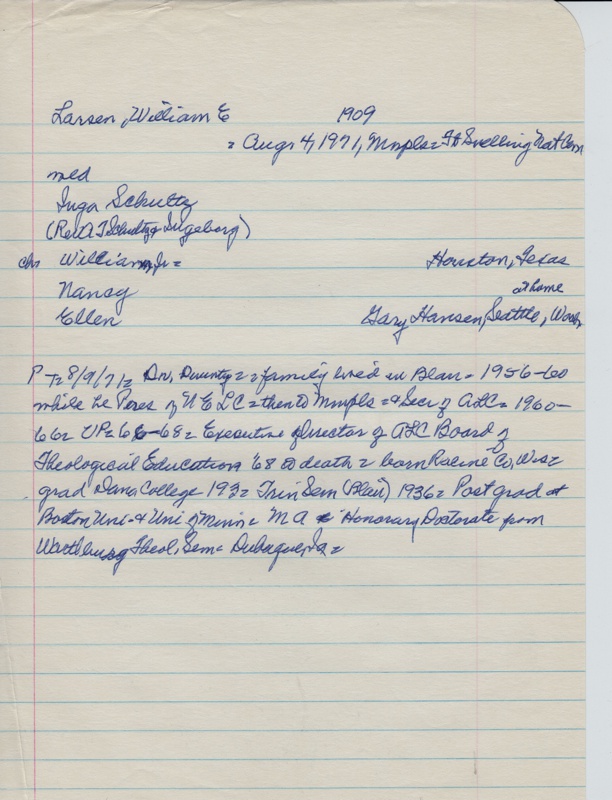 Larsen, William E 1909
= Aug 4, 1971, Mnpls = Ft Snelling Nat Cem
med
Inga Schultz
(Rev A T Schultz & Ingeborg)
chr William, Jr = Houston, Texas
Nancy at home
Ellen Gary Hansen, Seattle, Wash
P-T = 8/9/71 = Dr, = = family lived in Blair = 1956-60
while he Pres of U E L C = then to Mnpls = & Secr of ALC = 1960-
66 = VP = 66-68 = Executive Director of ALC Board of
Theological Education '68 to death = born Racine Co, Wis =
grad Dana College = Trin Sem (Blair) 1936 = Post grad at
Boston Uni & Uni of Minn = M A Honorary Doctorate from
Wartburg Theol, Sem = Dubuque, Ia =